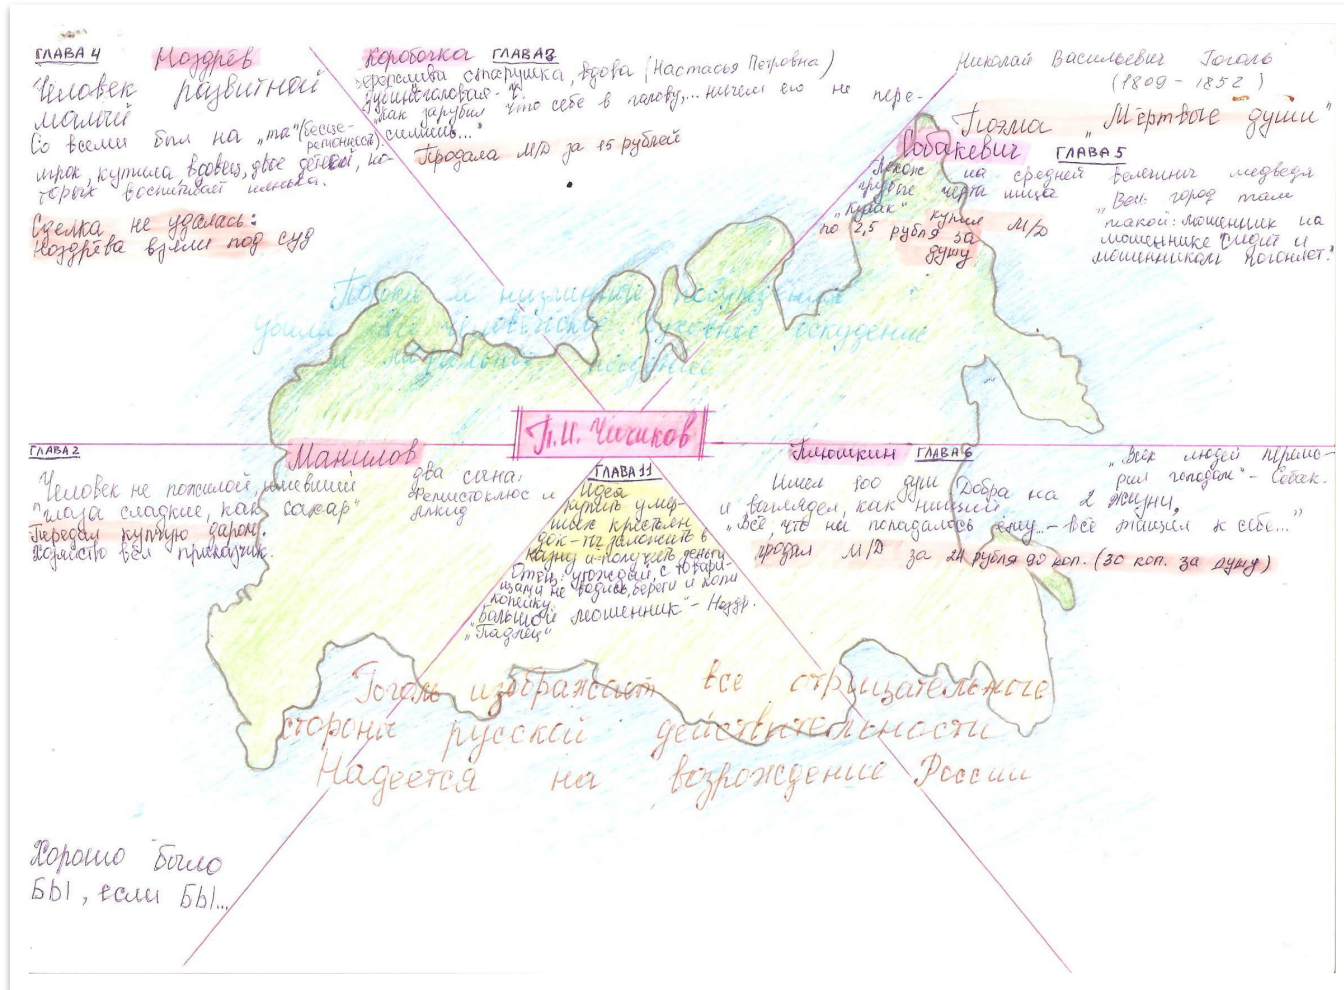 ГЛАВА 4 Ноздрёв
Человек развитной
малый
Со всеми был на „ты" (бесце-
ремонность).
игрок, кутила вдовец, двое детей, ко-
торых воспитывает нянька.
Сделка не удалась:
Ноздрёва взяли под суд
Коробочка ГЛАВА 3
старушка, вдова (Настасья Петровна)
дубинноголовая - Ч.
„как зарубил что себе в голову,... ничем его не пере-
силишь..."
Продала М/Д за 15 рублей
Николай Васильевич Гоголь
(1809 - 1852)
Поэма „Мёртвые души"
Собакевич ГЛАВА 5
Похож на средней величины медведя
грубые черты лица
„Кулак" купил М/Д
по 2,5 рубля за
душу
„Весь город там
такой: мошенник на
мошеннике сидит и
мошенником погоняет."
низменные побуждения
убили все человеческое. Духовное оскудение
и моральное
П.И. Чичиков
ГЛАВА 2
Манилов
Человек не пожилой, имевший
"глаза сладкие, как сахар"
Передал купчую даром.
Хозяйство вёл приказчик.
два сына:
Фемистоклюс и
Алкид
ГЛАВА 11
Идея
купить умер-
ших крестьян
заложить в
казну и получить деньги
Отец: угождай, с товари-
щами не водись, береги и копи
копейку.
„Большой мошенник" - Ноздр.
„Падлец"
Плюшкин ГЛАВА 6
Имел 800 душ
и выглядел, как нищий
Добра на 2 жизни,
„Всех людей перемо-
рил голодом" - Собак.
„Всё, что ни попадалось ему... - всё тащил к себе..."
продал М/Д за 24 рубля 90 коп. (30 коп. за душу)
Гоголь изображает все отрицательные
стороны русской действительности
Надеется на возрождение России
Хорошо было
БЫ, если БЫ...